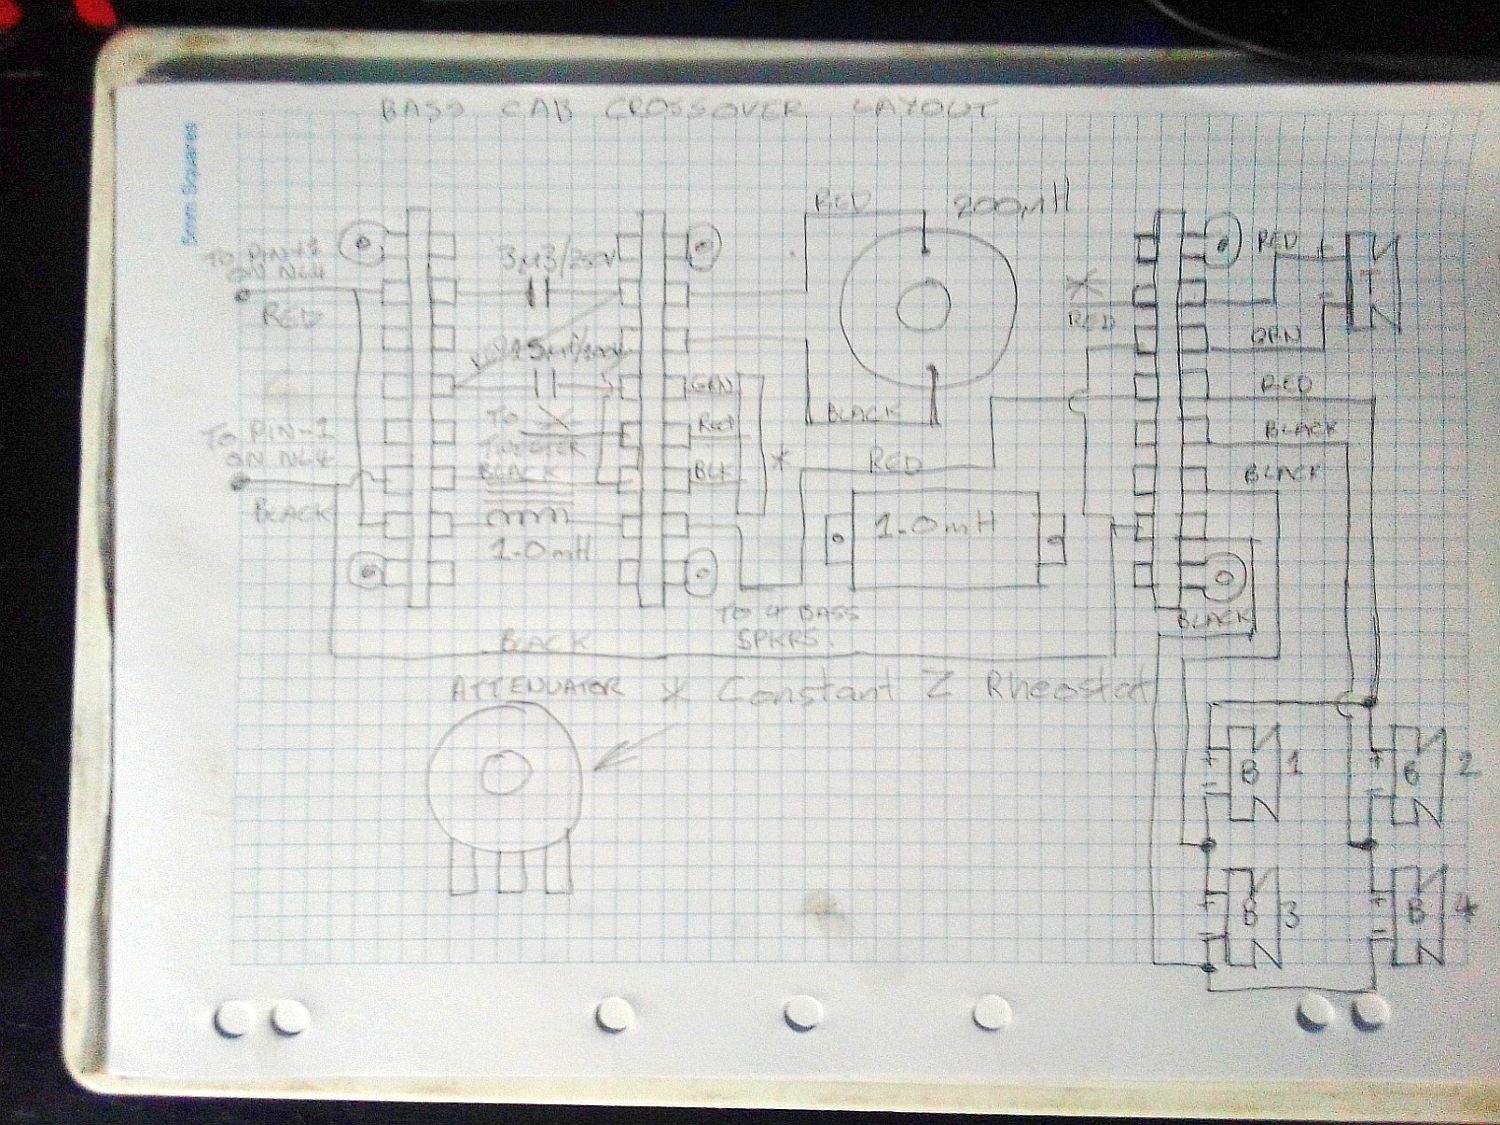 BASS CAB CROSSOVER LAYOUT
5mm Squares
TO PIN+1
ON NL4
RED
3µ3/250V
RED
200mH
X
RED
RED
+
-
T
GRN
TO X
TWEETER
BLACK
GRN
Red
BLK
*
BLACK
RED
RED
BLACK
BLACK
TO PIN-1
ON NL4
BLACK
1.0mH
1.0mH
TO 4 BASS
SPKRS.
BLACK
BLACK
ATTENUATOR * Constant Z Rheostat
+
-
B 1
+
-
B 2
+
-
B 3
+
-
B 4